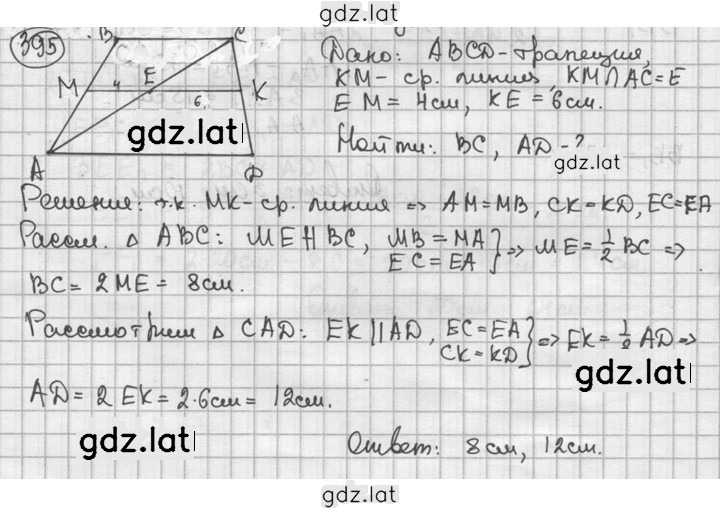 gdz.lat
395
B C
Дано: ABCD-трапеция,
M 4 E 6 K
KM- ср. линия, KM∩AC=E
EM = 4см, KE = 6см.
gdz.lat
Найти: BC, AD-?
gdz.lat
A D
Решение: т.к. MK-ср. линия => AM=MB, CK=KD, EC=EA
Рассм. △ ABC: ME∥BC, MB=MA
EC=EA } => ME=1/2 BC =>
BC= 2ME = 8см.
Рассмотрим △ CAD: EK∥AD, EC=EA
CK=KD } => EK=1/2 AD =>
gdz.lat
AD= 2 EK= 2·6см= 12см.
gdz.lat
Ответ: 8см, 12см.
gdz.lat